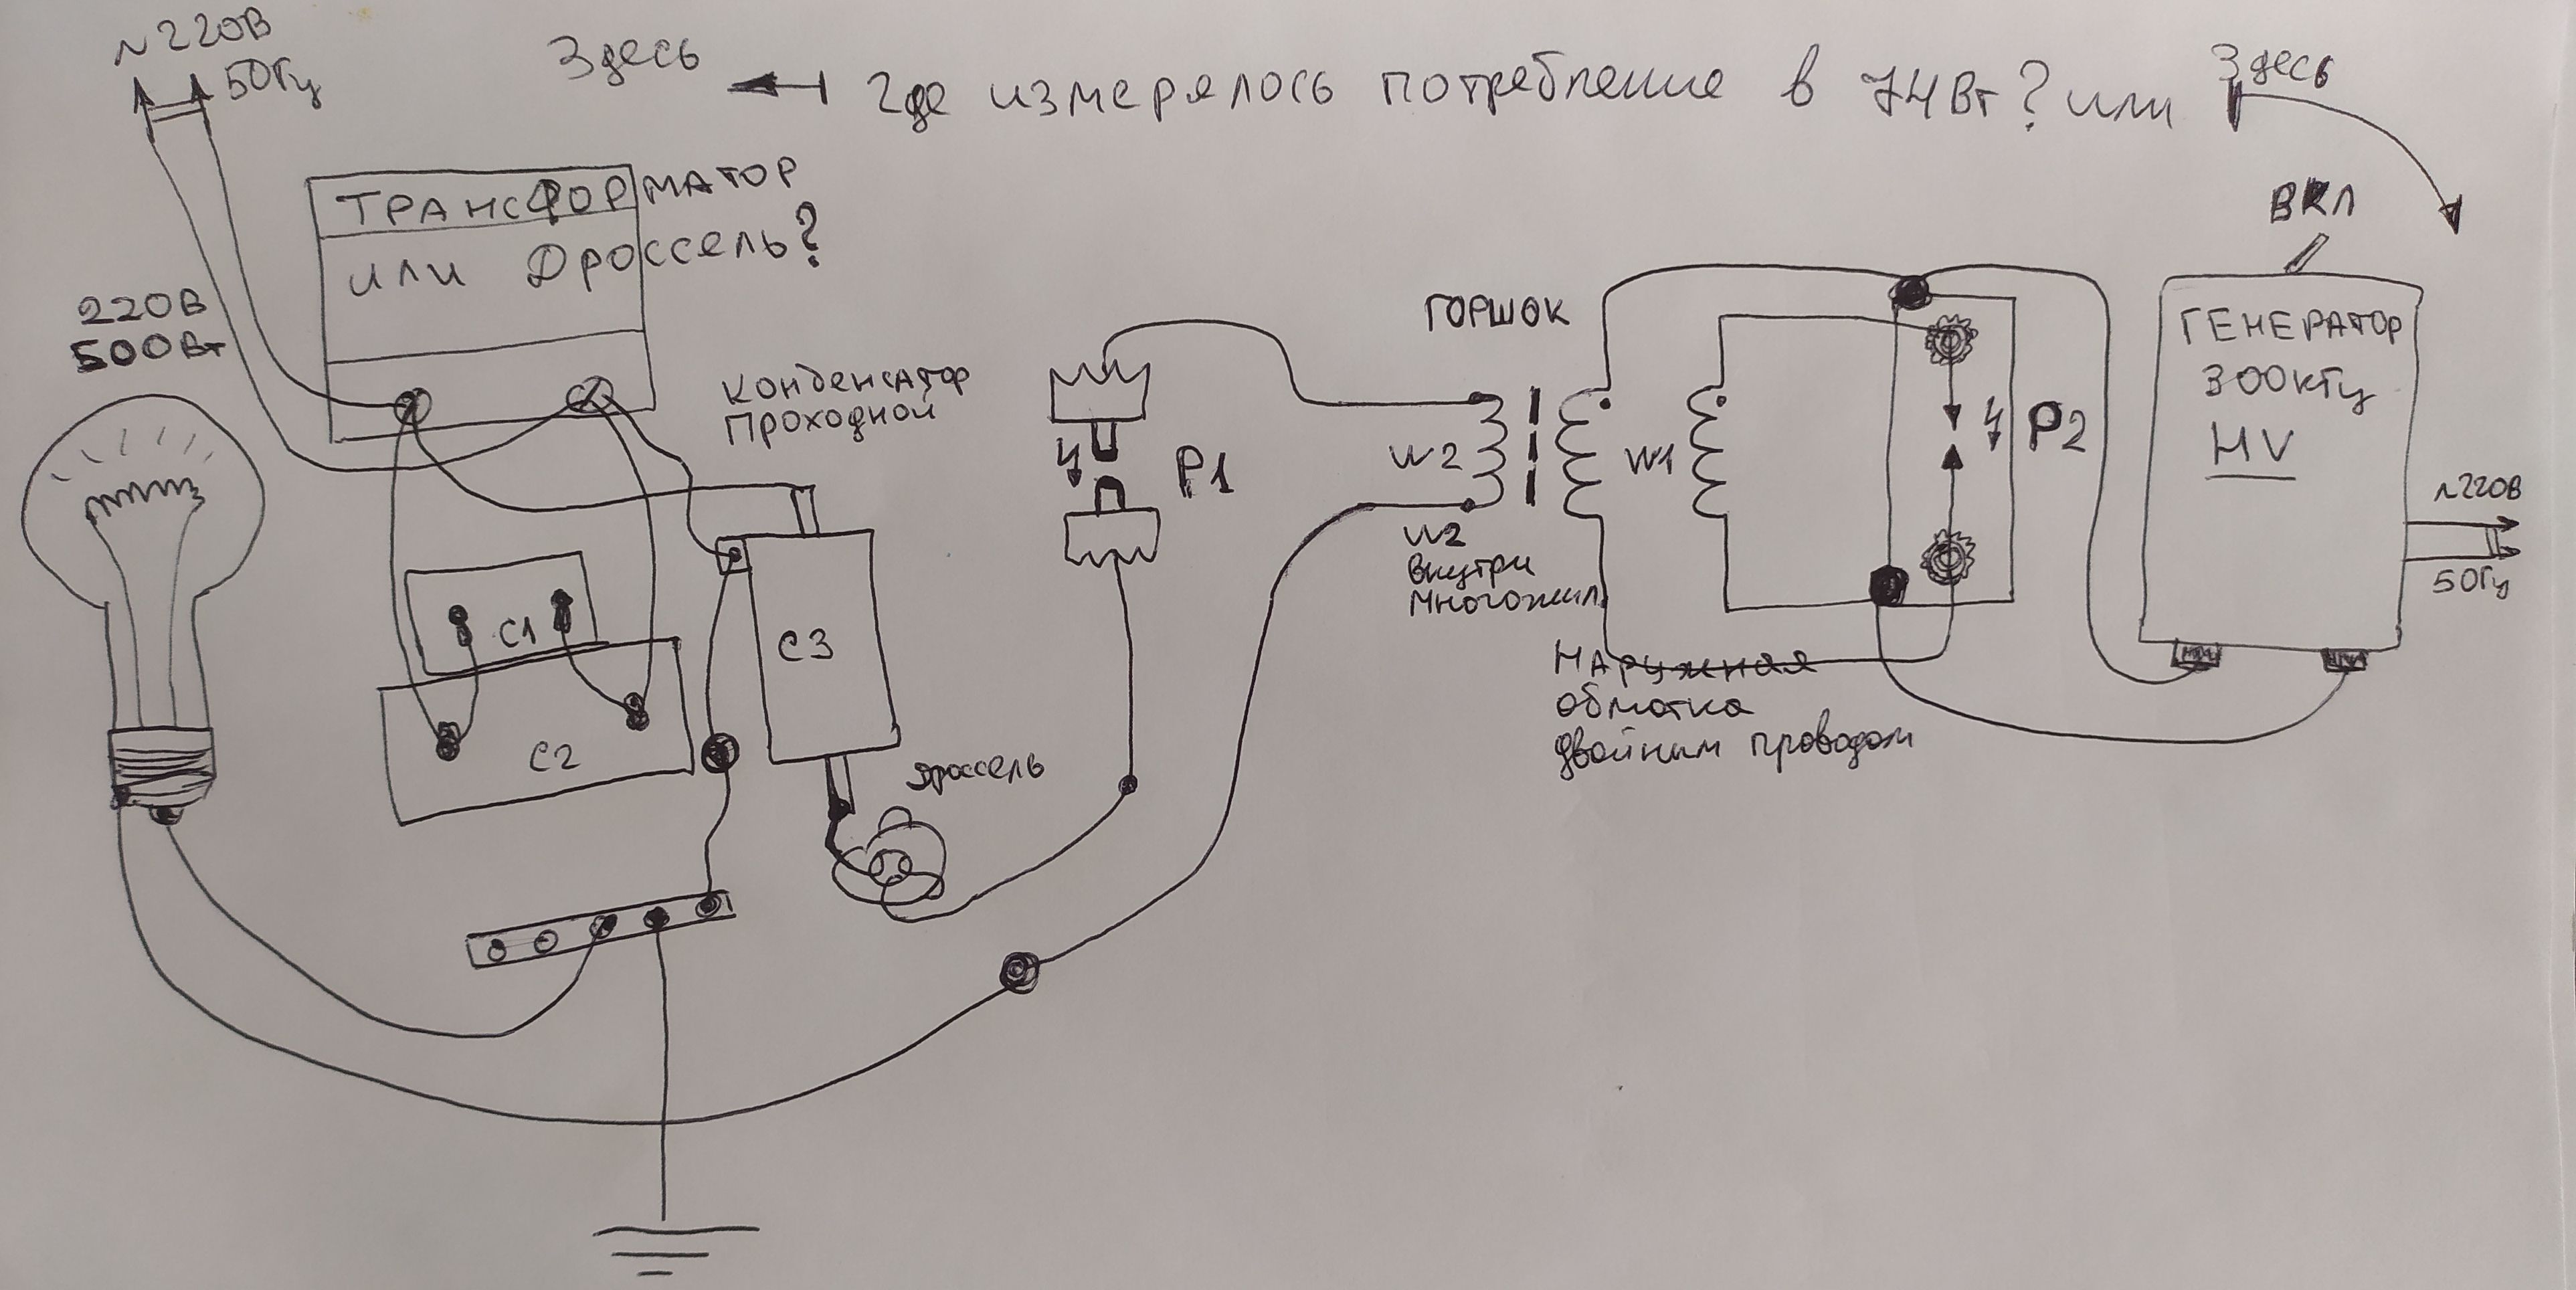 ~220В
50Гц
Здесь
где измерялось потребление в 74Вт? или
Здесь
ТРАНСФОРМАТОР
или Дроссель?
220В
500Вт
КОНДЕНСАТОР
ПРОХОДНОЙ
C1
C2
C3
дроссель
P1
ГОРШОК
W2
W1
W2
Внутри
Многожил.
НАружная
обмотка
двойным проводом
P2
ВКЛ
ГЕНЕРАТОР
300кГц
HV
~220В
50Гц